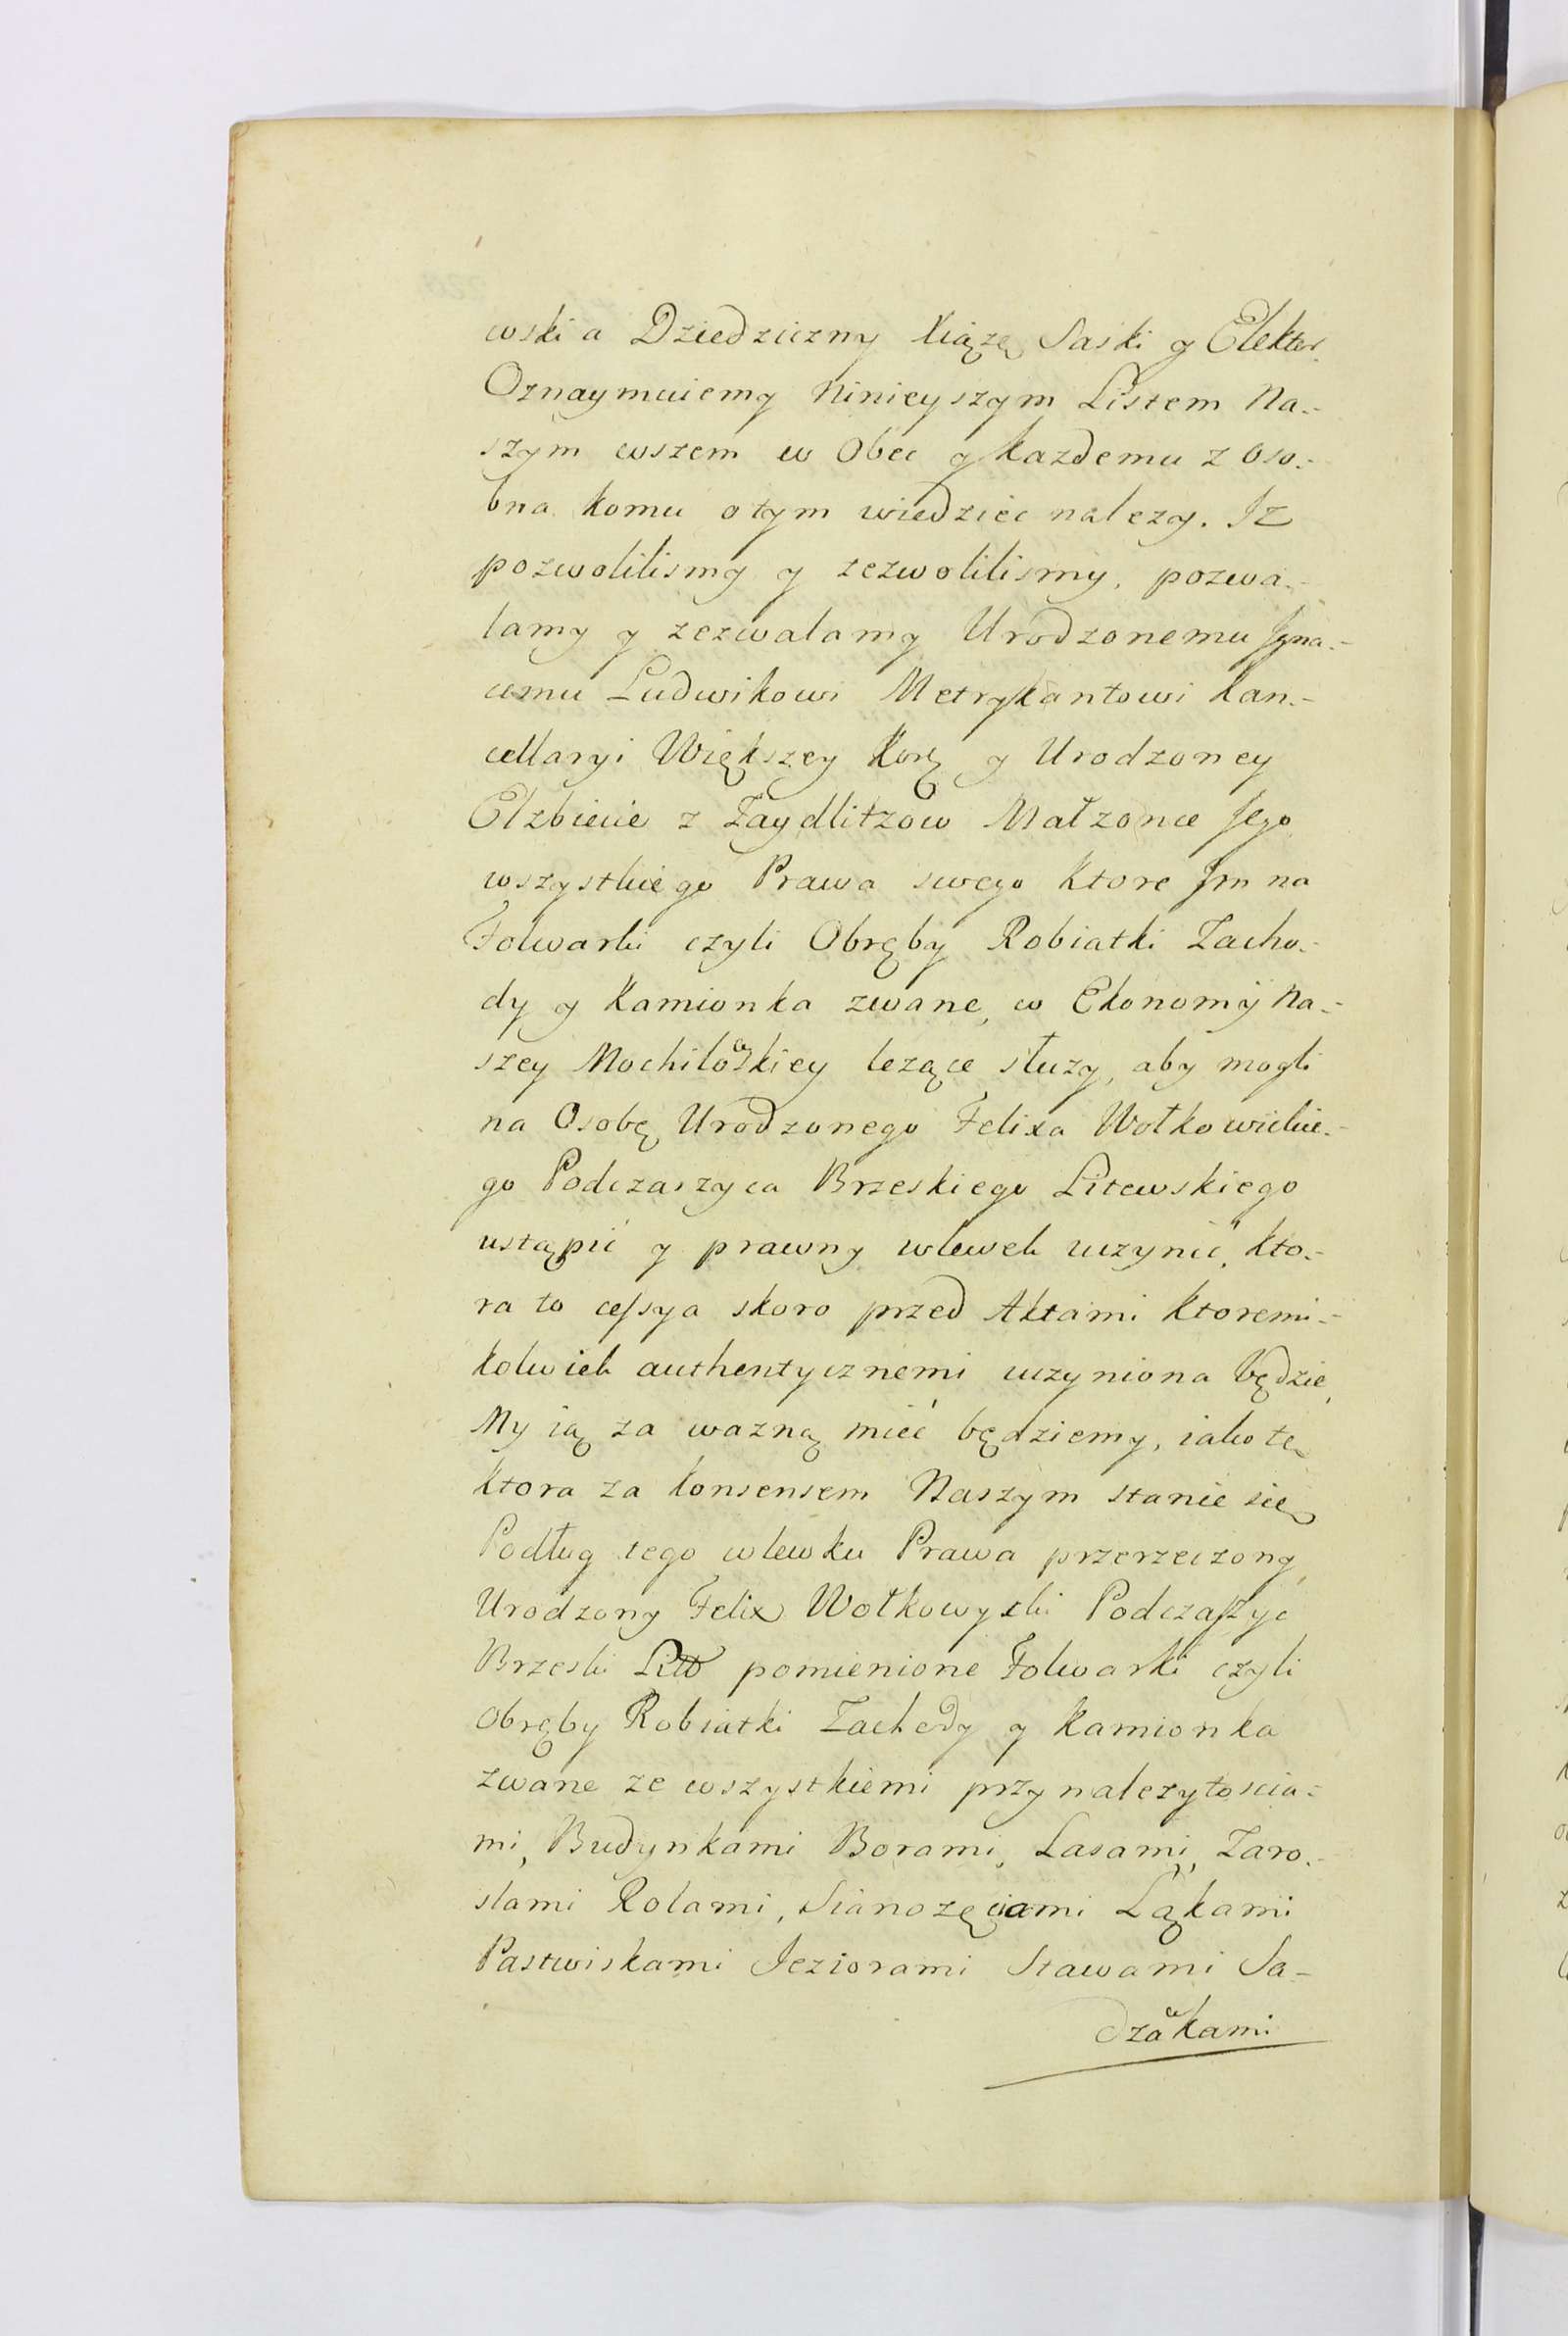 wski a Dziedziczny Xiążę Saski y Elektor.
Oznaymuiemy Ninieyszym Listem Na-
szym wszem w Obec y każdemu z oso-
bna komu o tym wiedziec nalezy. Iż
pozwolilismy y zezwolilismy, pozwa-
lamy y zezwalamy Urodzonemu Igna-
cemu Ludwikowi Metrykantowi Kan-
cellaryi Większey Korę y Urodzoney
Elzbiecie z Zaydlitzow Małzonce Jego
wszystkiego Prawa swego ktore Im na
Folwarki czyli Obręby Robiatki Zacho-
dy y Kamionka zwane, w Ekonomÿ Na-
szey Mochilowskiey lezące słuzy, aby mogli
na Osobę Urodzonego Felixa Wołkowickie-
go Podczaszyca Brzeskiego Litewskiego
ustąpić y prawny wlewek uczynić, kto-
ra to cessya skoro przed Aktami ktoremi-
kolwiek authentycznemi uczyniona będzie,
My ią za wazną mieć będziemy, iako tę
ktora za konsensem Naszym stanie się
Podług tego wlewku Prawa przerzeczony,
Urodzony Felix Wołkowycki Podczaszyc
Brzeski Litt pomienione Folwarki czyli
obręby Robiatki Zachody y Kamionka
zwane ze wszystkiemi przynalezytoscia-
mi, Budynkami Borami, Lasami, Zaro-
slami Rolami, Sianozęciami Ląkami
Pastwiskami Jeziorami Stawami Sa-
dzawkami